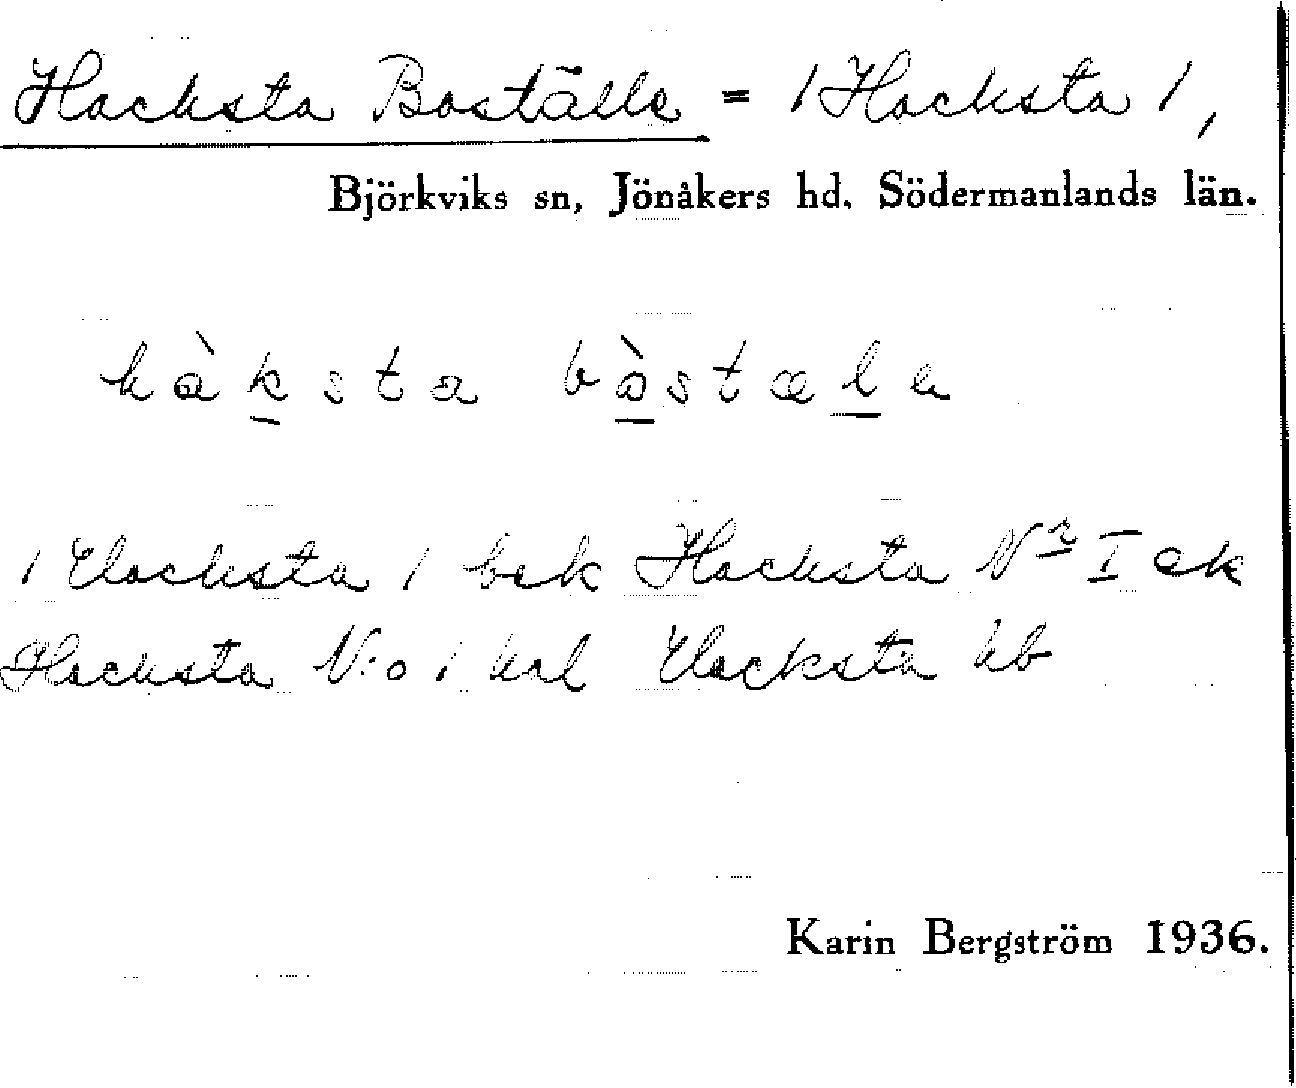 Hacksta Boställe = /Hacksta/,
Björkviks sn, Jönåkers hd. Södermanlands län.
hàksta bòstæla
/Hacksta/ bek Hacksta Nr I ek
Hacksta N:o 1 hal Hacksta kb
Karin Bergström 1936.